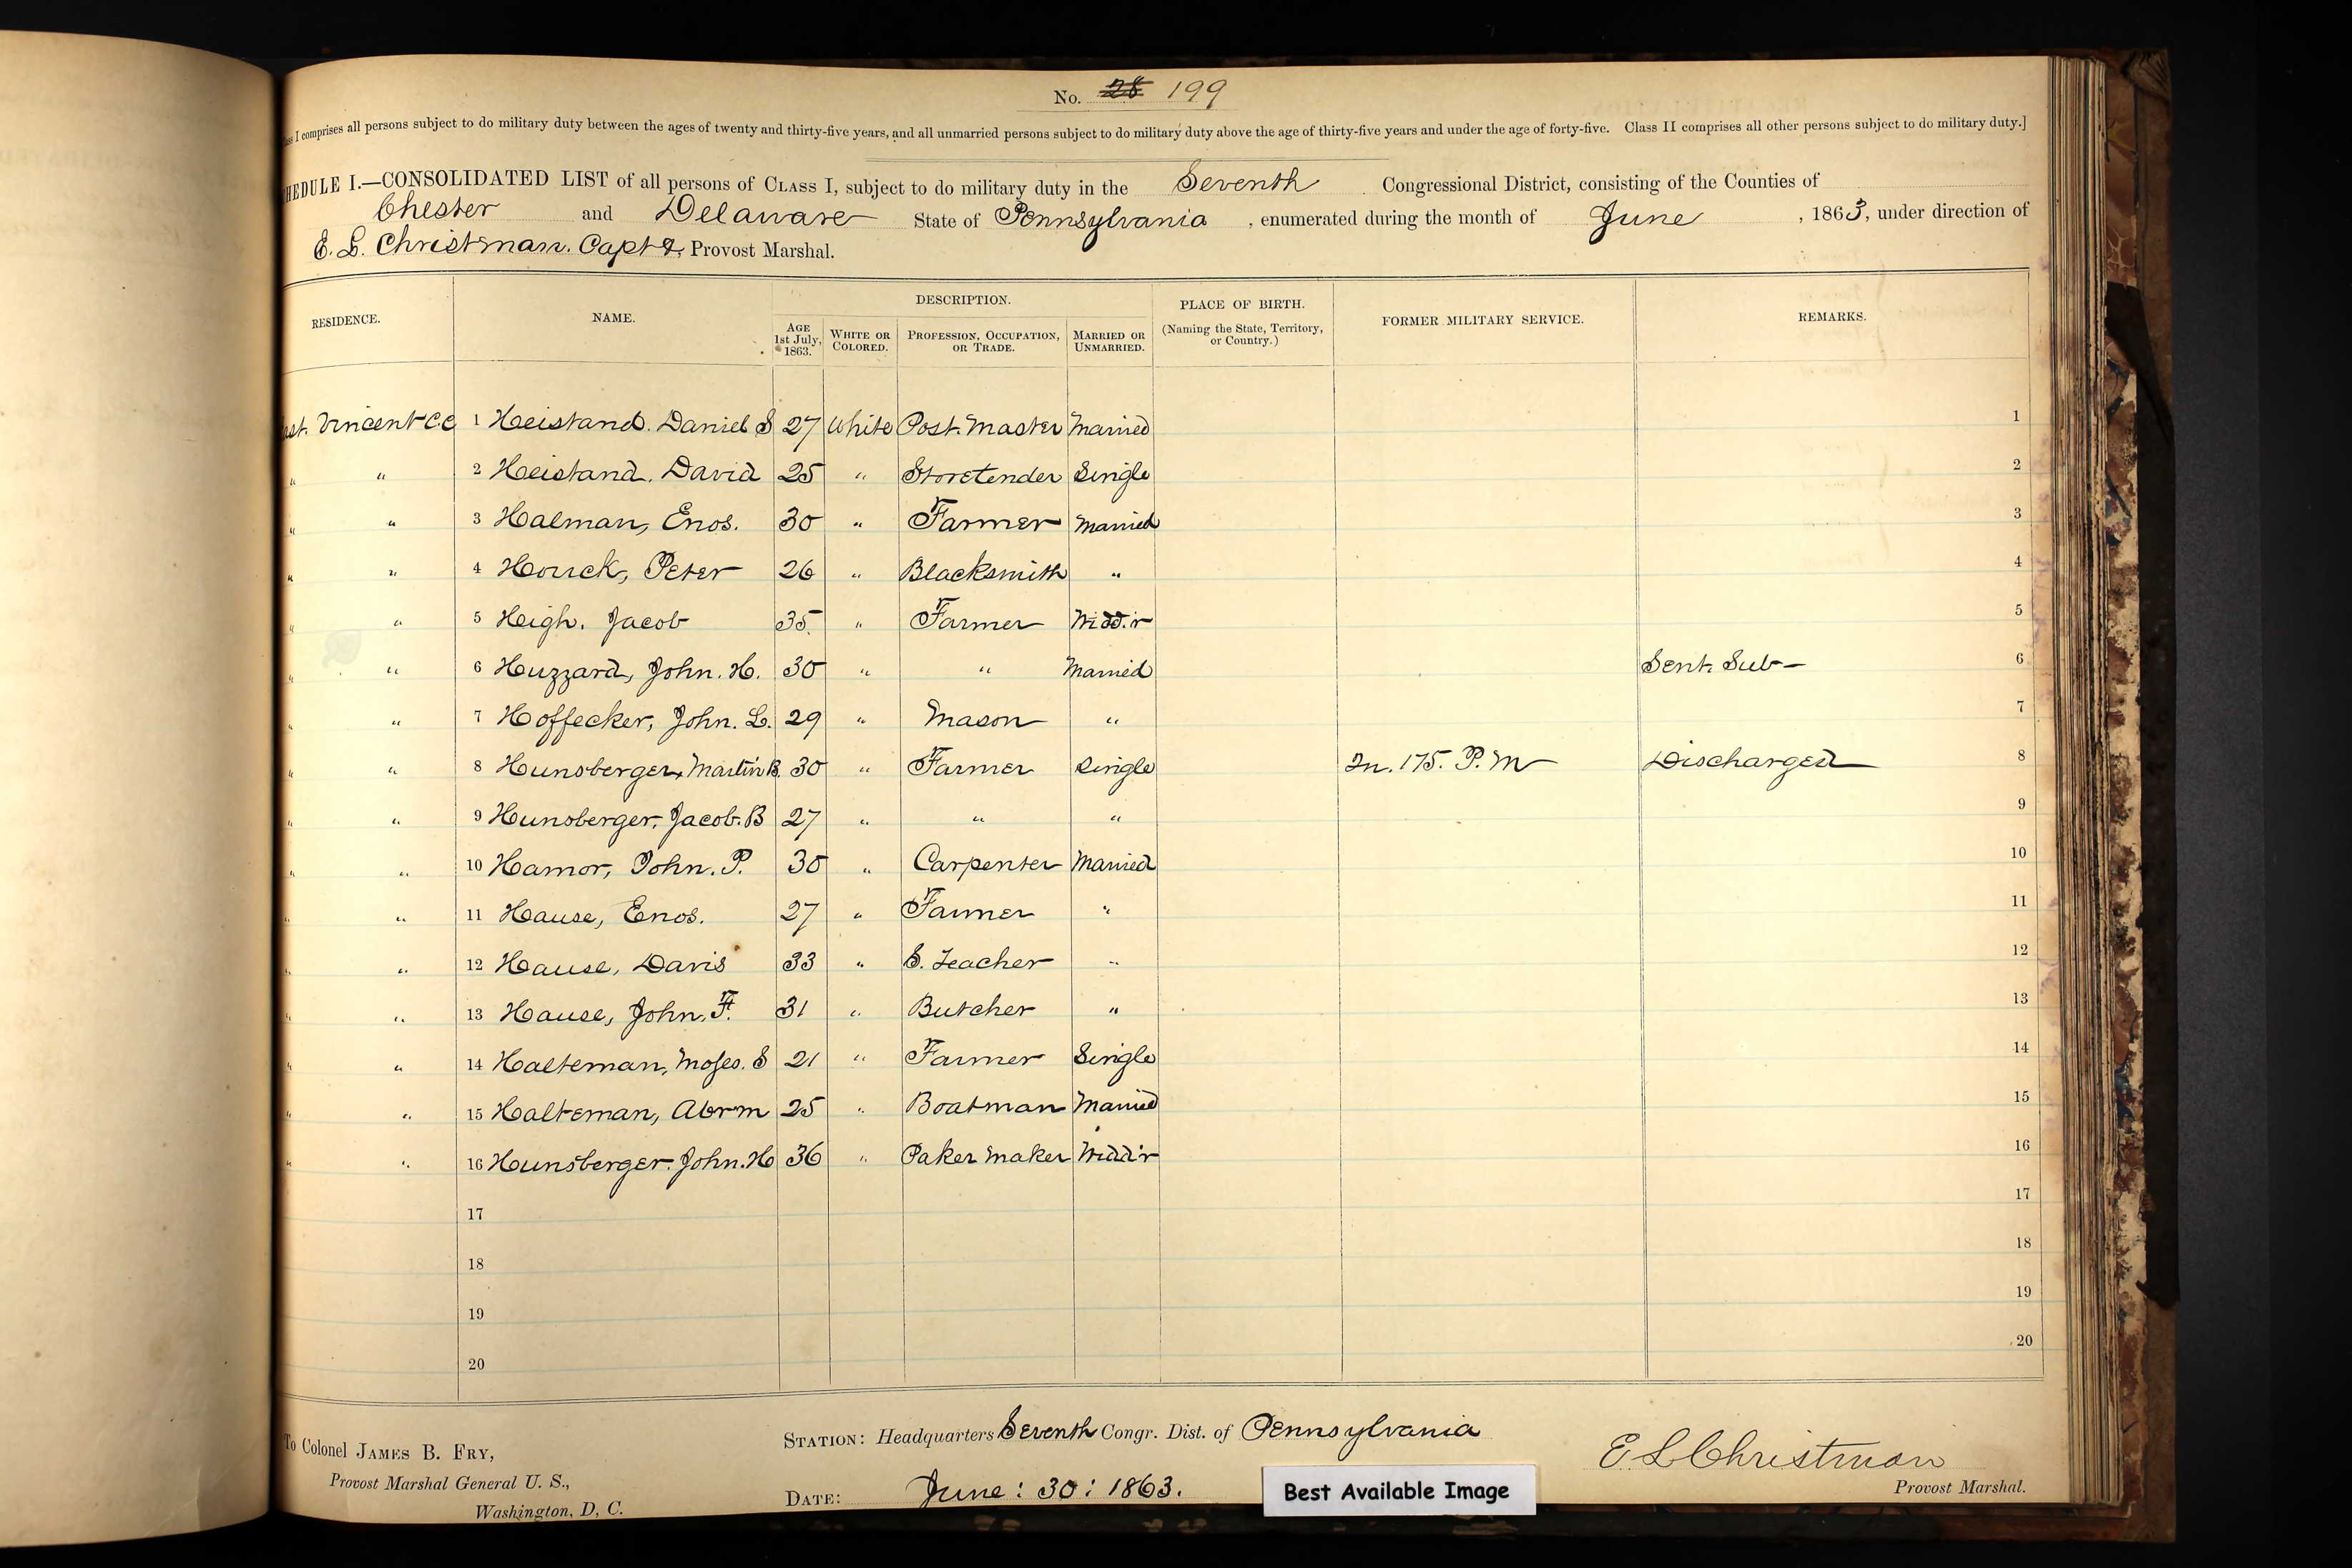 No. 28 199
I comprises all persons subject to do military duty between the ages of twenty and thirty-five years, and all unmarried persons subject to do military duty above the age of thirty-five years and under the age of forty-five. Class II comprises all other persons subject to do military duty.]
HEDULE I.—CONSOLIDATED LIST of all persons of CLASS I, subject to do military duty in the Seventh Congressional District, consisting of the Counties of
Chester and Delaware State of Pennsylvania, enumerated during the month of June, 1863, under direction of
E. L. Christman. Capt & Provost Marshal.
DESCRIPTION.
RESIDENCE. NAME. AGE 1st July, 1863. WHITE OR COLORED. PROFESSION, OCCUPATION, OR TRADE. MARRIED OR UNMARRIED. PLACE OF BIRTH. (Naming the State, Territory, or Country.) FORMER MILITARY SERVICE. REMARKS.
ast. Vincent C.C 1 Heistand. Daniel S 27 White Post. Master Married 1
" " 2 Heistand. David 25 " Storetender Single 2
" " 3 Halman, Enos. 30 " Farmer Married 3
" " 4 Houck, Peter 26 " Blacksmith " 4
" " 5 Heigh. Jacob 35. " Farmer Widd.r 5
" " 6 Huzzard, John. H. 30 " " Married Sent. Sub— 6
" " 7 Hoffecker, John. L. 29 " Mason " 7
" " 8 Hunsberger, Martin B. 30 " Farmer Single In. 175. P. M Discharged 8
" " 9 Hunsberger, Jacob. B 27 " " " 9
" " 10 Hamor, John. P. 30 " Carpenter Married 10
" " 11 Hause, Enos. 27 " Farmer " 11
" " 12 Hause, Davis 33 " S. Teacher " 12
" " 13 Hause, John. F. 31 " Butcher " 13
" " 14 Halteman, Moses. S 21 " Farmer Single 14
" " 15 Halteman, Abrm 25 " Boatman Married 15
" " 16 Hunsberger. John. H 36 " Paker Maker Widd'r 16
17 17
18 18
19 19
20 20
To Colonel JAMES B. FRY,
Provost Marshal General U. S.,
Washington, D, C.
STATION: Headquarters Seventh Congr. Dist. of Pennsylvania
DATE: June: 30: 1863.
E L Christman
Provost Marshal.
Best Available Image